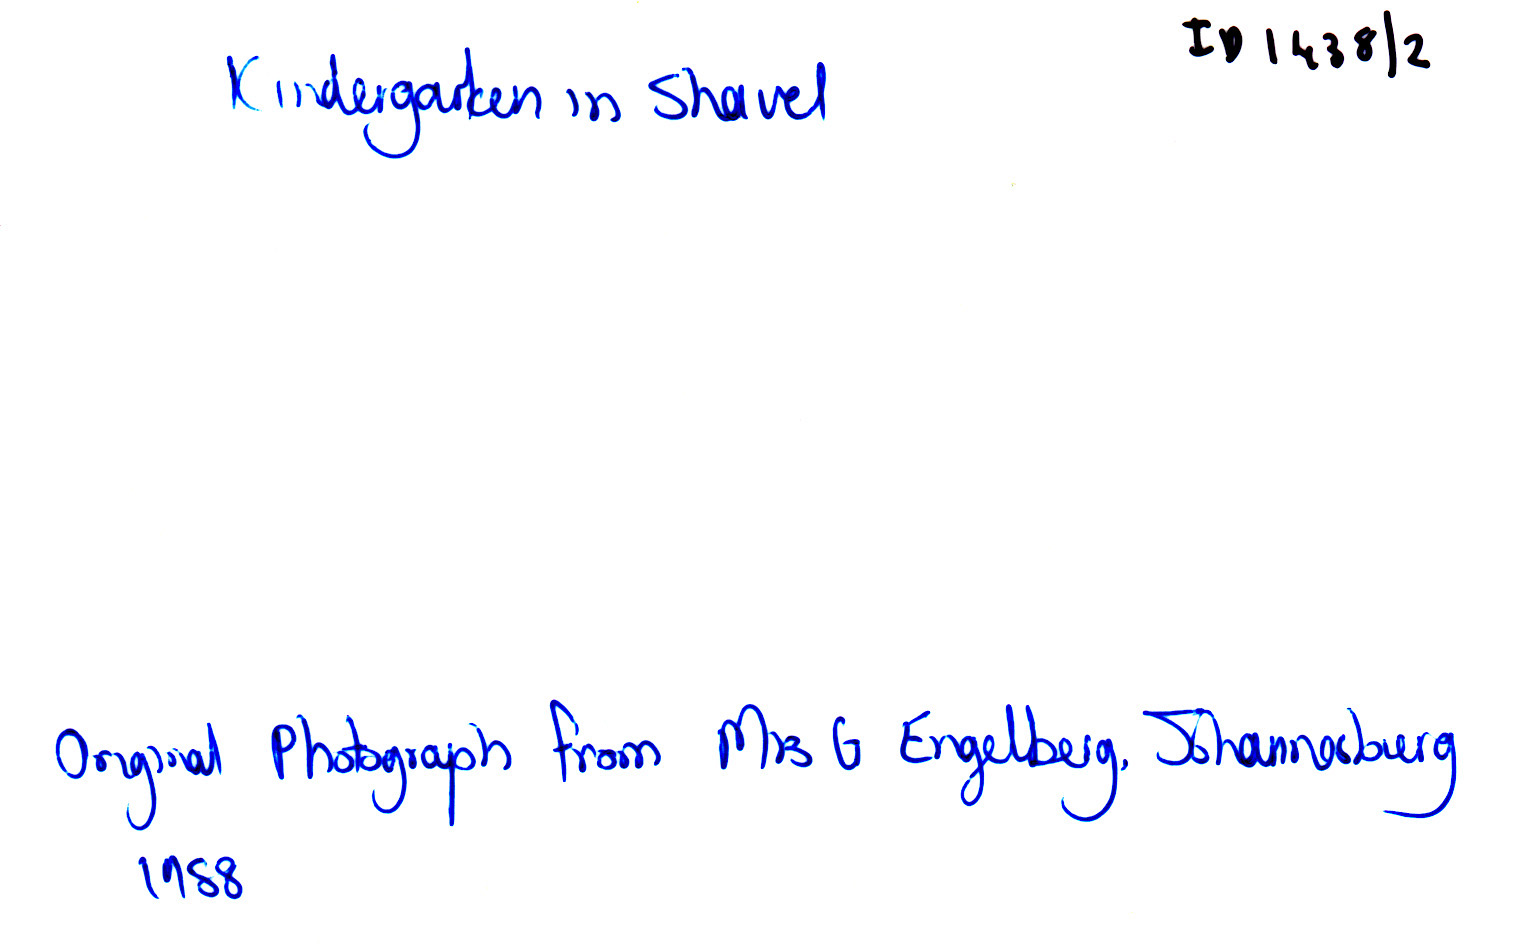 ID 1438/2
Kindergarten in Shavel
Original Photograph from Mrs G Engelberg, Johannesburg
1988